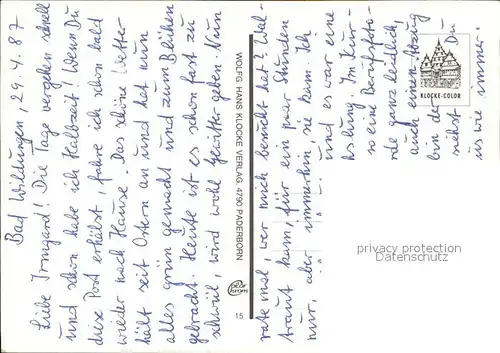 Bad Wildungen, 29.4.87
Liebe Irmgard! Die Tage vergehen schnell
und schon habe ich Halbzeit! Wenn Du
diese Post erhälst, fahre ich schon bald
wieder nach Hause. Das schöne Wetter
hält seit Ostern an und hat nun
alles grün gemacht und zum Blühen
gebracht. Heute ist es schon fast zu
schwül, wird wohl Gewitter geben. Nun
WOLFG. HANS KLOCKE VERLAG, 4790 PADERBORN
15
rate mal, wer mich besucht hat? Wal-
traut kam, für ein paar Stunden
nur, aber immerhin sie kam. Ich
und es war eine
. Im Kur-
so eine Berufsfoto-
ganz deutlich,
auch einen Abzug
bin
siehst Du
wie immer
KLOCKE-COLOR
privacy protection
AKPool.de